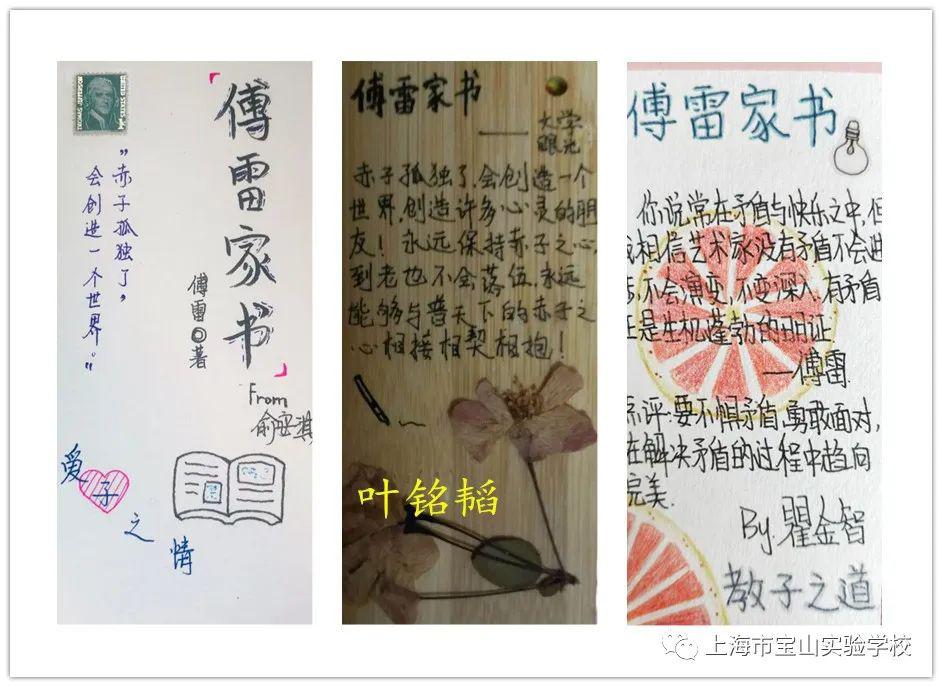 傅雷家书
傅雷◎著
"赤子孤独了,
会创进一个世界。"
From
俞安淇
爱子之情
傅雷家书
—— 大学
眼光
赤子孤独了,会创造一个
世界,创造许多心灵的朋
友！永远保持赤子之心,
到老也不会落伍,永远
能够与普天下的赤子之
心相接相契相抱！
叶铭韬
傅雷家书
你说常在矛盾与快乐之中,但
我相信艺术家没有矛盾不会进
步,不会演变,不变深入.有矛盾
正是生机蓬勃的明证
——傅雷.
点评:要不惧矛盾,勇敢面对,
在解决矛盾的过程中趋向
完美.
By.瞿金智
教子之道
上海市宝山实验学校